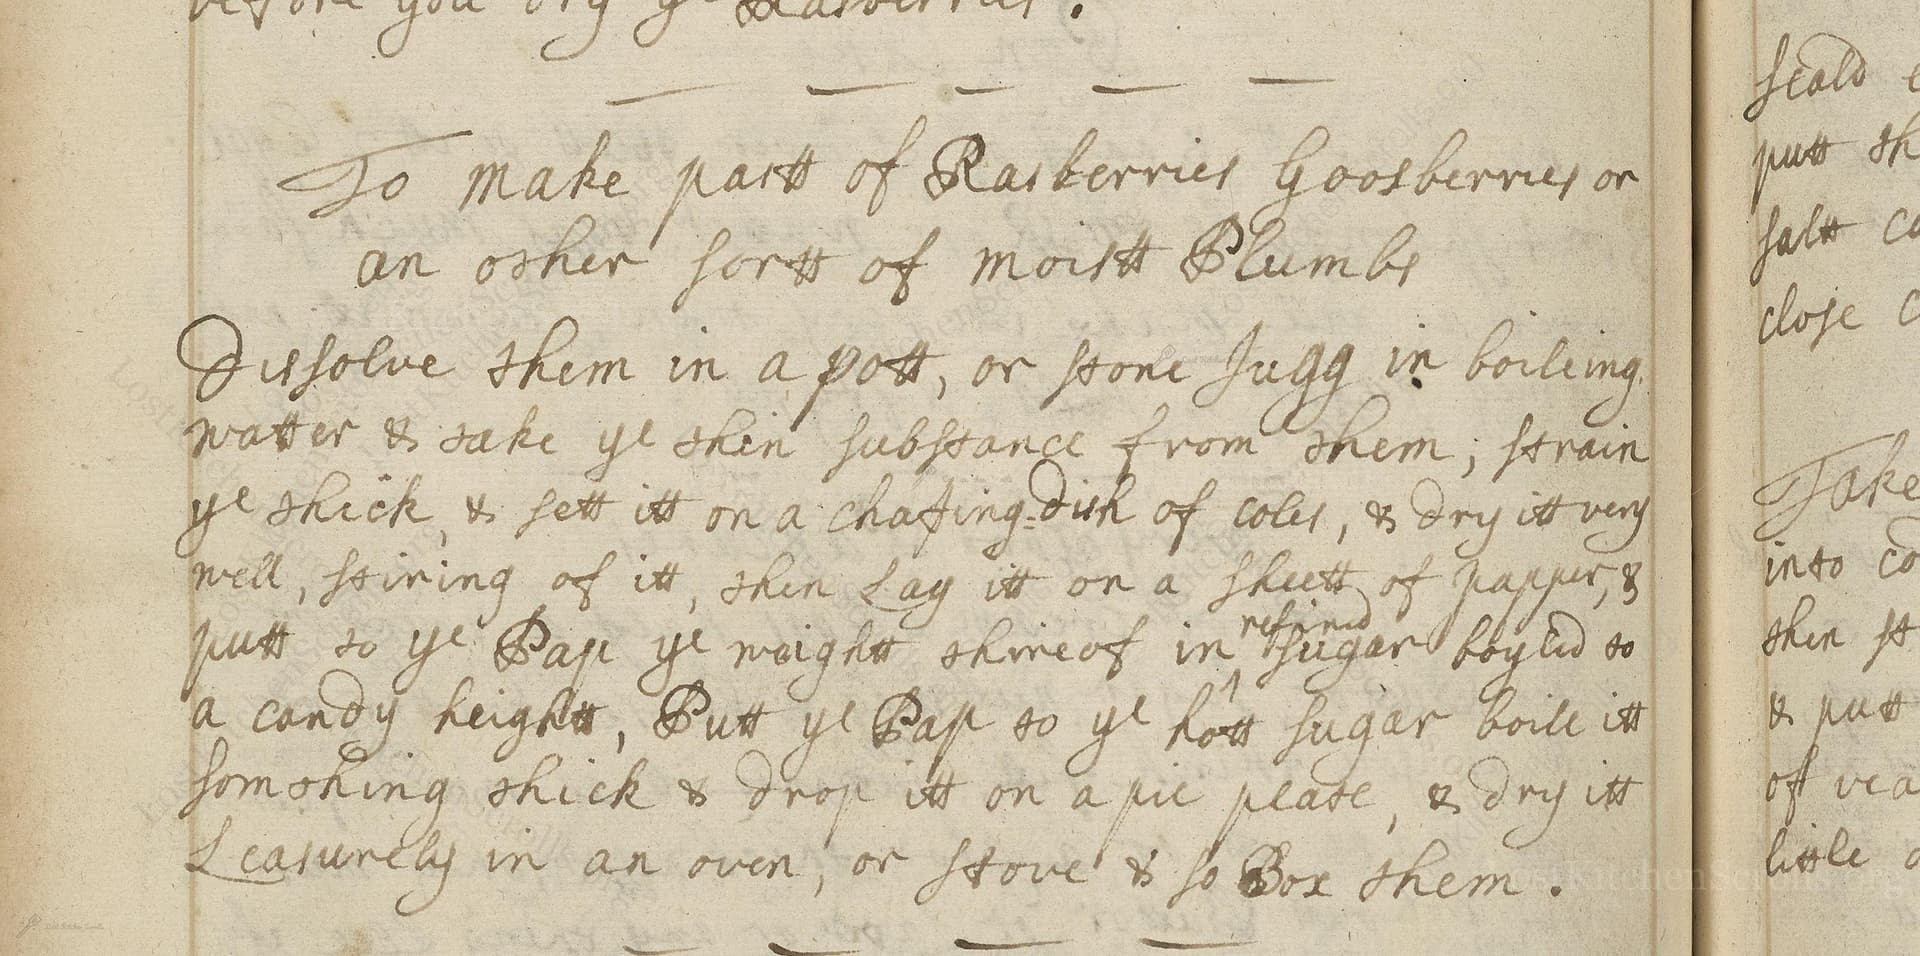 before you dry ye Rasberries.
To make pastt of Rasberries Goosberries or
an other sortt of moistt Plumbs
Dissolve them in a pott, or stone Jugg in boileing
watter & take ye thin substance from them; strain
ye thick, & sett itt on a chafing=dish of coles, & dry itt very
well, stiring of itt, then Lay itt on a sheett of papper, &
putt to ye Pap ye weightt thereof in ^ refined sugar boyled to
a candy heightt, Putt ye Pap to ye hott sugar boile itt
somthing thick & drop itt on a pie plate, & dry itt
Leasurely in an oven, or stove & so Box them.
scald
putt th
saltt co
close c
Take
into co
then st
& putt
of vea
little o